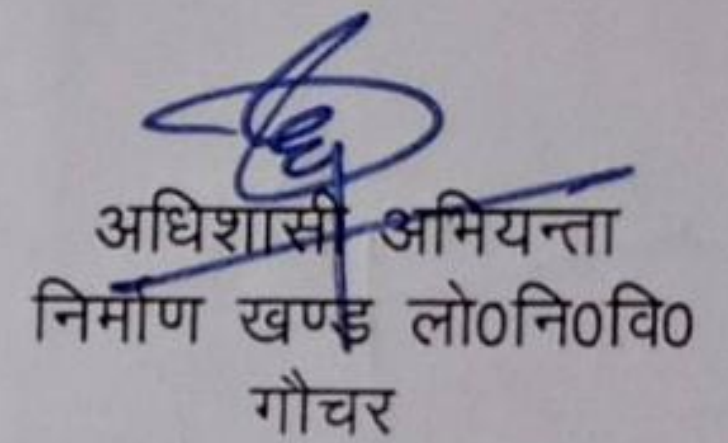 अधिशासी अभियन्ता
निर्माण खण्ड लो0नि0वि0
गौचर